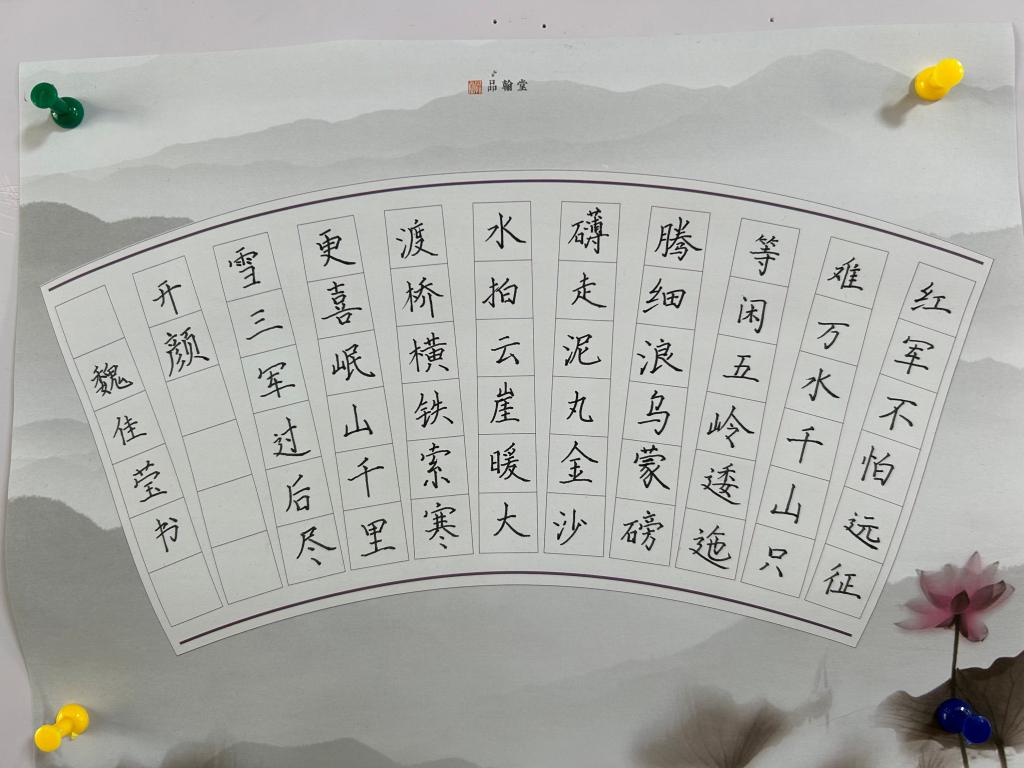 品翰堂
红军不怕远征
难万水千山只
等闲五岭逶迤
腾细浪乌蒙磅
礴走泥丸金沙
水拍云崖暖大
渡桥横铁索寒
更喜岷山千里
雪三军过后尽
开颜
魏佳莹书